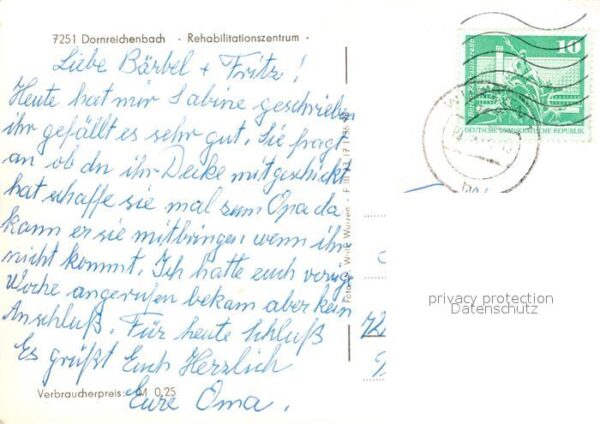 7251 Dornreichenbach · Rehabilitationszentrum ·
Liebe Bärbel + Fritz!
Heute hat mir Sabine geschrieben
ihr gefällt es sehr gut. Sie fragt
an ob du ihr Decke mitgeschickt
hat schaffe sie mal zum Opa da
kann er sie mitbringen wenn ihr
nicht kommt. Ich hatte euch vorige
Woche angerufen bekam aber kein
Anschluß. Für heute Schluß
Es grüßt Euch Herzlich
Eure Oma.
Verbraucherpreis: M 0,25
10
DEUTSCHE DEMOKRATISCHE REPUBLIK
privacy protection
Datenschutz